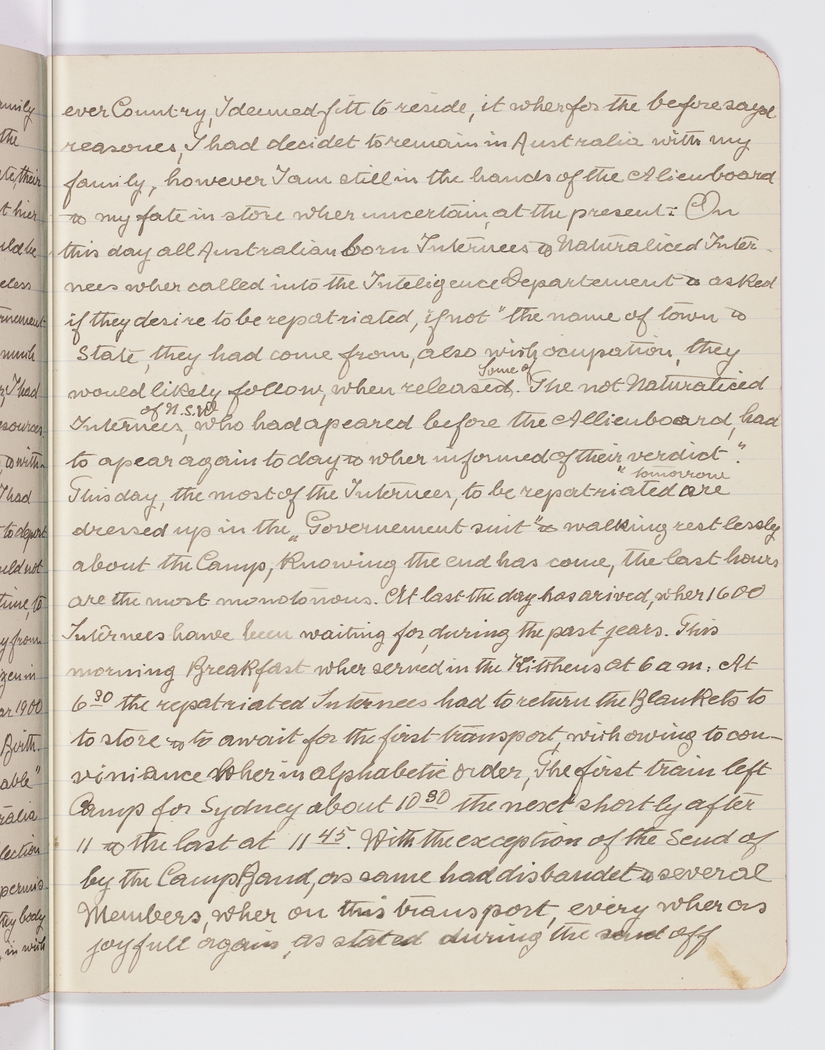 ever Country, I deemed fitt to reside, it wher for the before sayed
reasones, I had decidet to remain in Australia with my
family, however I am still in the hands of the Alienboard
& my fate in store wher uncertain, at the present :- On
this day all Australian born Internees & Naturaliced Inter-
nees wher called into the Inteligence Departement & asked
if they desire to be repatriated, if not "the name of town &
State, they had come from, also wish ocupation, they
would likely follow, when released. Some of The not Naturaliced
Internees, of N.S.W. who had apeared before the Allienboard, had
to apear again to day & wher informed of their verdict".
This day, the most of the Internees, to be repatriated "tomorrow are
dressed up in the "Governement suit" & walking restlessly
about the Camp, Knowing the end has come, the last hours
are the most monotonous. At last the day has arived, wher 1600
Internees hawe been waiting for, during the past jears. This
morning Breakfast wher served in the Kitchens at 6 a m: At
6 30 the repatriated Internees had to return the Blankets to
to store & to await for the first transport, wish owing to con-
viniance wher in alphabetic order, The first train left
Camp for Sydney about 10 30 the next shortly after
11 & the last at 11 45. With the exception of the Send of
by the Camp Band, as same had disbandet & several
Members, wher on this transport, every wher as
joyfull again, as stated during the send off